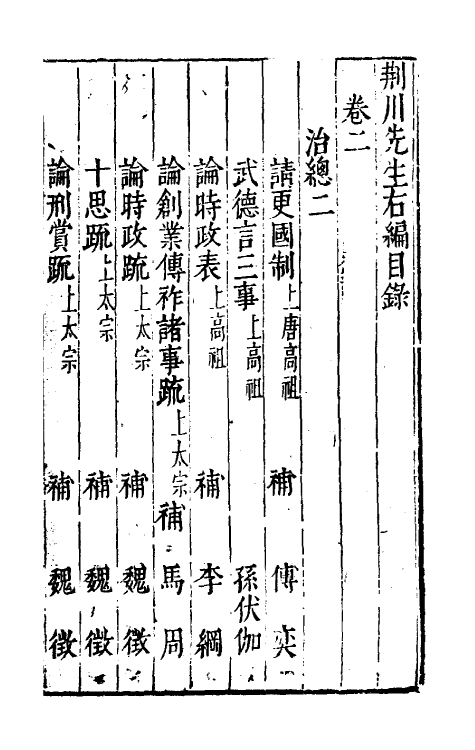 荆川先生右編目録
卷二
治總二
請更國制上唐高祖 補 傅奕
武德言三事上高祖 孫伏伽
論時政表上高祖 補 李綱
論創業傳祚諸事䟽上太宗 補 馬周
論時政䟽上太宗 補 魏徵
十思䟽上太宗 補 魏徵
論刑賞䟽上太宗 補 魏徵